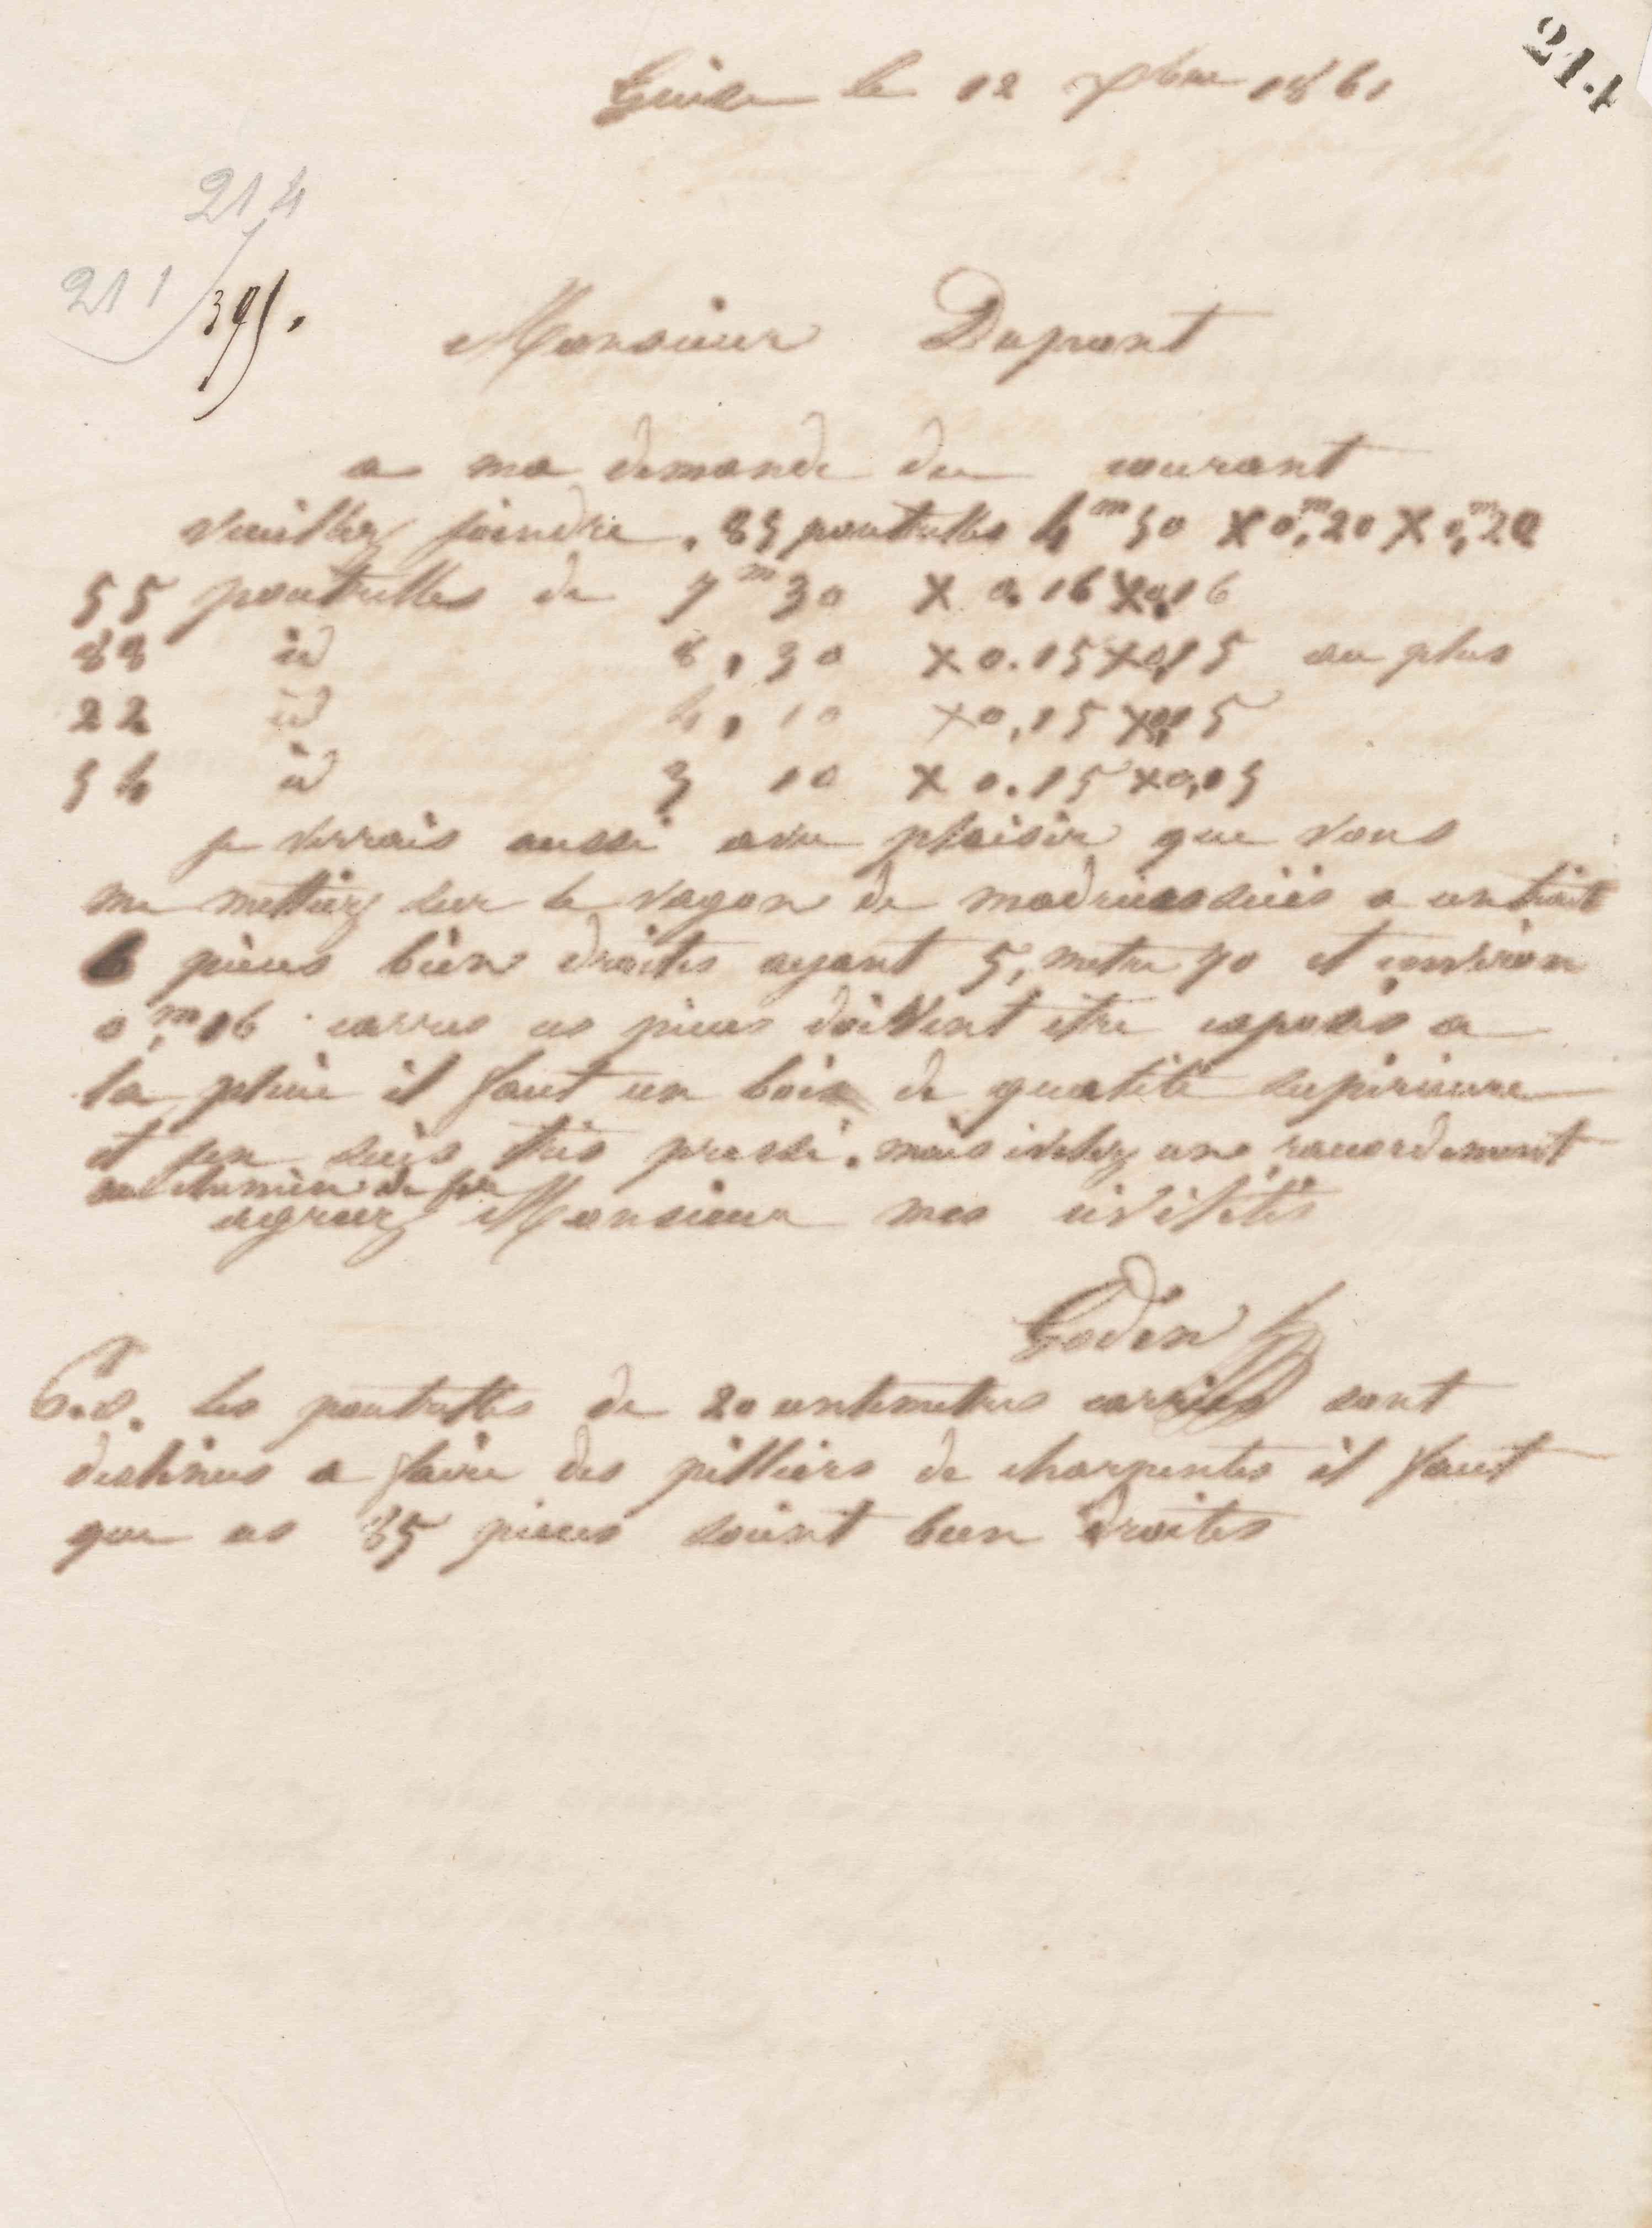 214
Guise le 12 7bre 1861
214
211
391.
Monsieur Dupont
a ma demande du courant
veuillez joindre. 85 poutrelles 4m50 x 0m,20 x 0m,20
55 poutrelles de 7m30 x 0.16 x 0,16
88 id 8,30 x 0.15 x 0,15 au plus
22 id 4,10 x 0,15 x 0,15
54 id 3 10 x 0.15 x 0,15
je verrais aussi avec plaisir que vous
me mettiez sur le vagon de madriers sciés a un trait
6 pièces bien droites ayant 5, metre 70 et environ
0,m16 carres ces pieces doivent etre exposés a
la pluie il faut un bois de qualité superieure
et j'en suis très pressé. mais evitez une raccordement
au chemin de fer
agreez Monsieur mes civilités
Godin
P.S. les poutrelles de 20 centimetres carries sont
destinees a faire des pilliers de charpentes il faut
que ces 85 pieces soient bien droites